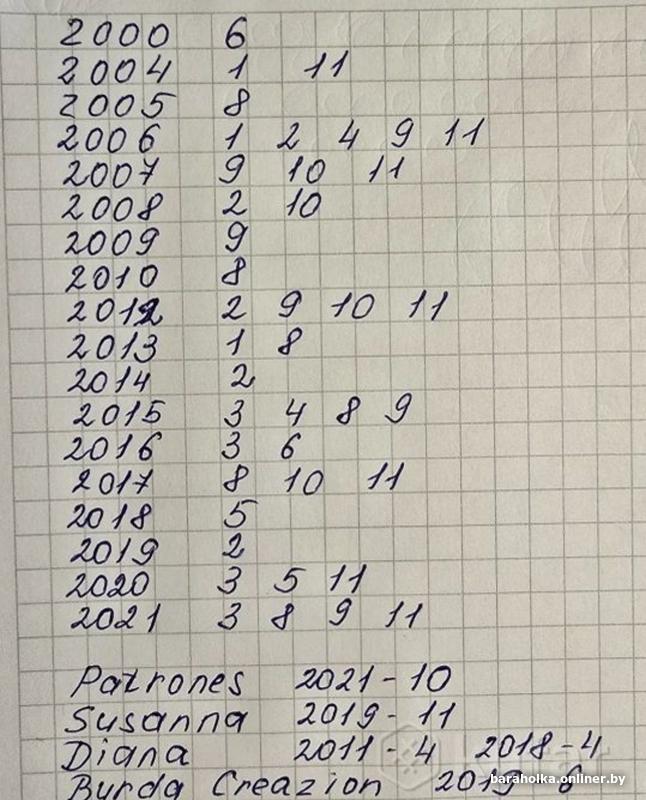 2000 6
2004 1 11
2005 8
2006 1 2 4 9 11
2007 9 10 11
2008 2 10
2009 9
2010 8
2012 2 9 10 11
2013 1 8
2014 2
2015 3 4 8 9
2016 3 6
2017 8 10 11
2018 5
2019 2
2020 3 5 11
2021 3 8 9 11
Patrones 2021-10
Susanna 2019-11
Diana 2011-4 2018-4
Burda Creazion 2019-6
baraholka.onliner.by